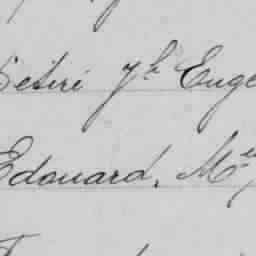 Désiré Jh Euge
Edouard, Mce